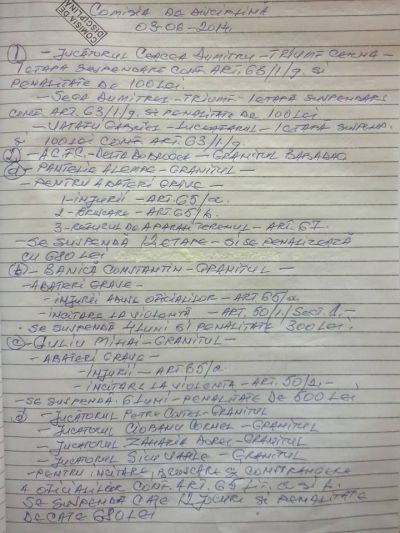 COMISIA DE DISCIPLINA
COMISIA DE DISCIPLINA
03-06-2014.
1 - JUCATORUL CEACEA DUMITRU - TRIUMF CERNA -
1 ETAPA SUSPENDARE CONF. ART. 63/1/g. SI
PENALITATE DE 100 LEI.
- DUMITRU - TRIUMF - 1 ETAPA SUSPENDARE
CONF. ART. 63/1/g. SI PENALITATE DE 100 LEI
- VATAFU GABRIEL - - 1 ETAPA SUSPEND.
SI 100 LEI CONF. ART. 63/1/g.
2 - ACFC - DELTA DOBROGEA - GRANITUL BABADAG
a - PANTELIE - GRANITUL -
- PENTRU ABATERI GRAVE -
1 - INJURII - ART. 65/a.
2 - BRUSCARE - ART. 65/b.
3 - REFUZUL DE A PARASI TERENUL - ART. 67.
- SE SUSPENDA 12 ETAPE - SI SE PENALIZEAZĂ
CU 680 LEI
b - BANICA CONSTANTIN - GRANITUL -
- ABATERI GRAVE -
- INJURII OFICIALILOR - ART 65/a
- INCITARE LA VIOLENTA - ART. 50/1/
- SE SUSPENDĂ 4 LUNI SI PENALITATE 300 LEI.
c - GULIU MIHAI - GRANITUL -
- ABATERI GRAVE -
- INJURII - ART 65/a.
- INCITARE LA VIOLENTA - ART. 50/2. -
- SE SUSPENDA: 6 LUNI - PENALITATE DE 500 LEI
d - JUCATORUL PETRE - GRANITUL
- JUCATORUL CIOBANU CORNEL - GRANITUL
- JUCATORUL ZAHARIA - GRANITUL
- JUCATORUL VASILE - GRANITUL
- PENTRU INCITARE, BRUSCARE SI CONSTRANGERE
A OFICIALILOR CONF. ART. 65 LIT. a SI b.
SE SUSPENDA CATE 12 JOCURI SI PENALITATE
DE CATE 680 LEI